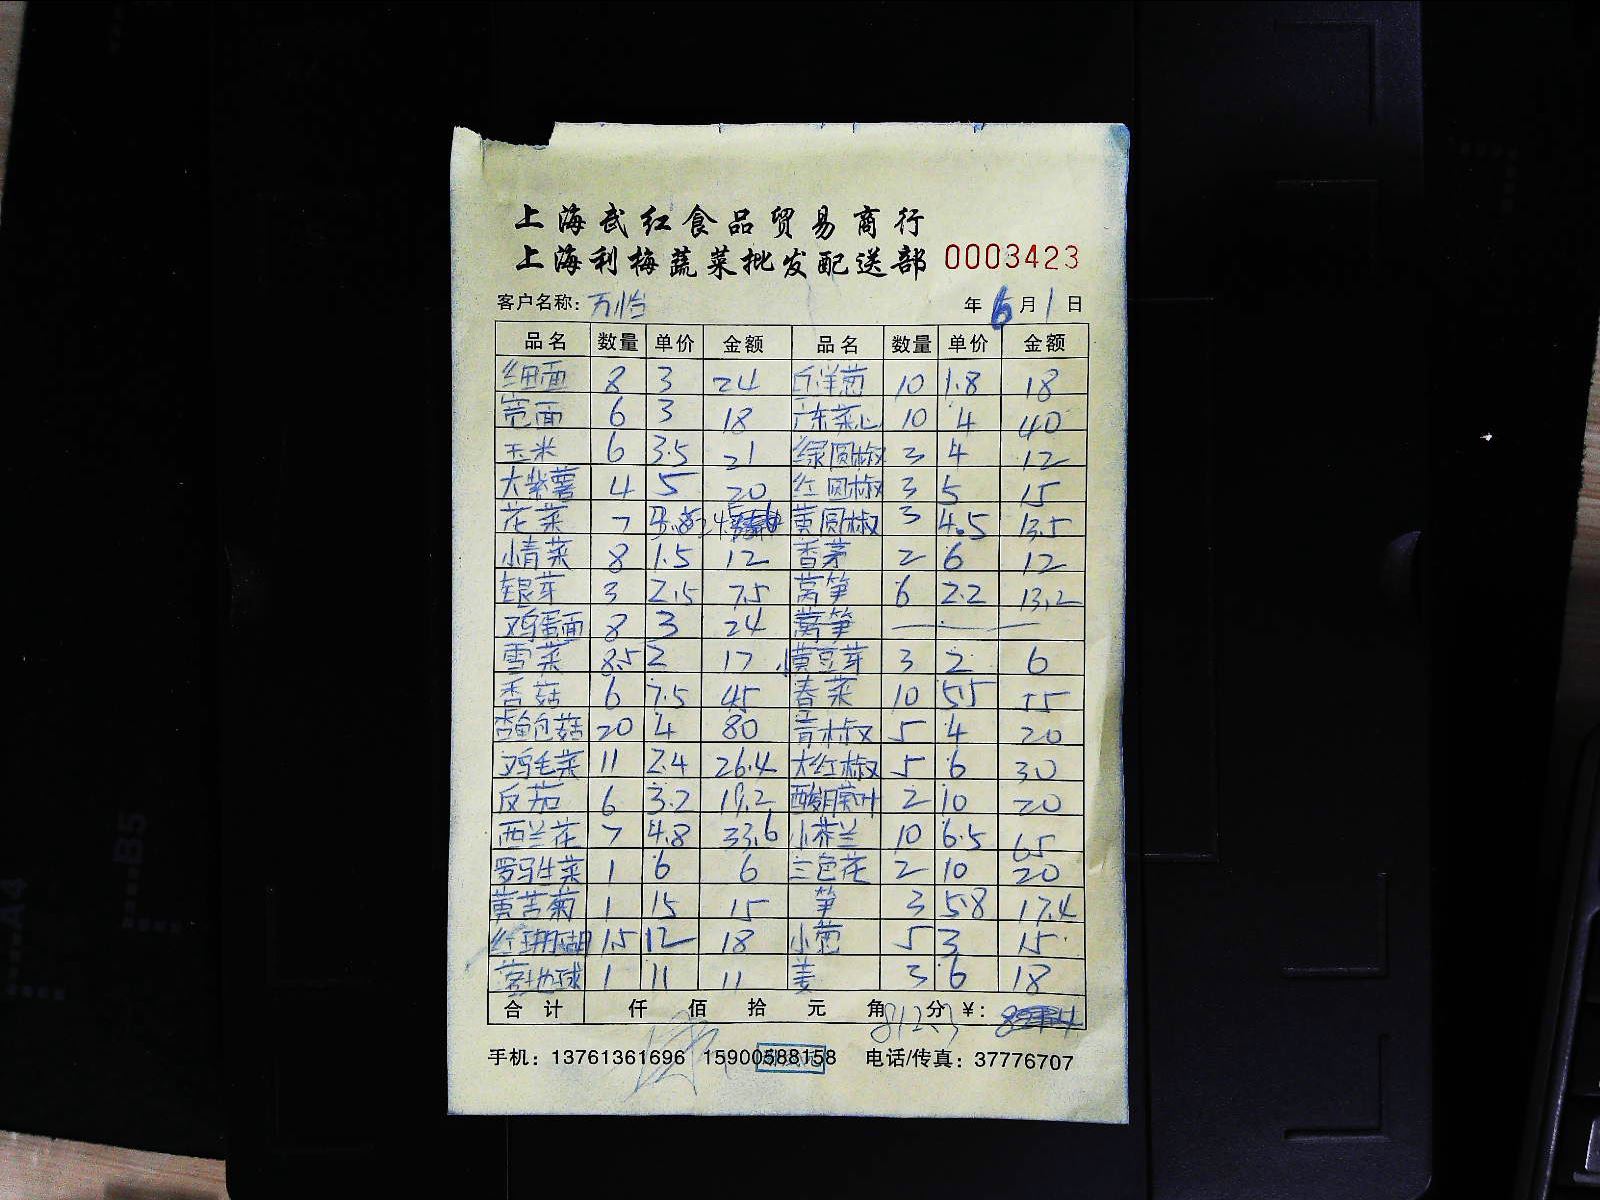 上海武红食品贸易商行
上海利梅蔬菜批发配送部 0003423
客户名称: 万怡 年 6 月 1 日
品名 数量 单价 金额 品名 数量 单价 金额
细面 8 3 24 白洋葱 10 1.8 18
宽面 6 3 18 广东菜心 10 4 40
玉米 6 3.5 21 绿圆椒 3 4 12
大紫薯 4 5 20 红圆椒 3 5 15
花菜 7 黄圆椒 3 4.5 13.5
小青菜 8 1.5 12 香茅 2 6 12
银芽 3 2.5 7.5 莴笋 6 2.2 13.2
鸡蛋面 8 3 24 莴笋
雪菜 8.5 2 17 小黄豆芽 3 2 6
香菇 6 7.5 45 春菜 10 5.5 55
杏鲍菇 20 4 80 青椒 5 4 20
鸡毛菜 11 2.4 26.4 大红椒 5 6 30
反茄 6 3.2 19.2 酸膜叶 2 10 20
西兰花 7 4.8 33.6 小芥兰 10 6.5 65
罗马生菜 1 6 6 三色花 2 10 20
黄苦菊 1 15 15 笋 3 5.8 17.4
红珊瑚 1.5 12 18 小葱 5 3 15
苦地球 1 11 11 姜 3 6 18
合计 仟 佰 拾 元 角 分 ¥:
812.3
手机: 13761361696 15900588158 电话/传真: 37776707